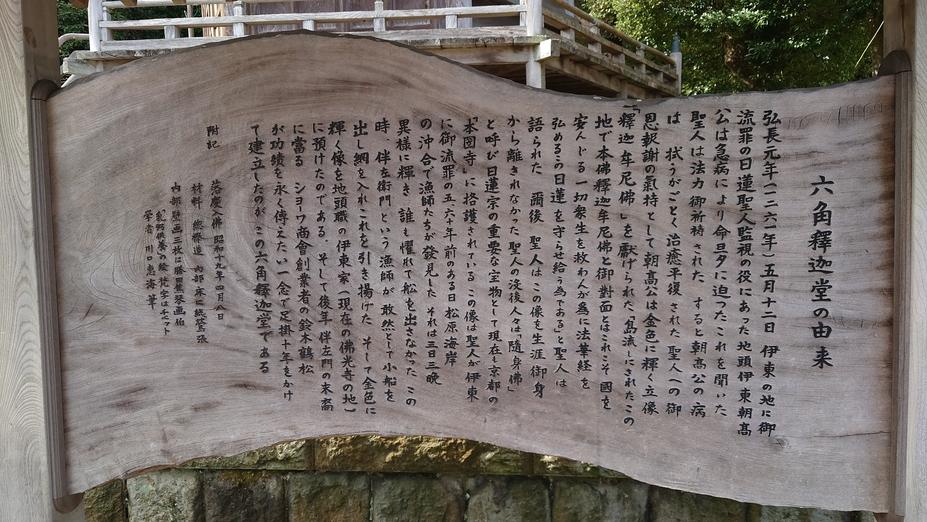 六角釋迦堂の由来
弘長元年(一二六一年)五月十二日 伊東の地に御
流罪の日蓮聖人監視の役にあった地頭伊東朝高
公は急病により命旦夕に迫ったこれを聞いた
聖人は法力御祈禱された すると朝高公の病
は 拭うがごとく 治癒平復 された 聖人への御
恩報謝の氣持として朝高公は金色に輝く立像
「釋迦牟尼佛」を献げられた「島流しにされたこの
地で本佛釋迦牟尼佛と御對面とはこれこそ國を
安んじる一切衆生を救わんが為に法華経を
弘めるの日蓮を守らせ給う為である」と聖人は
語られた 爾後 聖人は この像を生涯御身
から離されなかった聖人の没後人々は「隨身佛」
と呼び日蓮宗の重要な宝物として現在も京都の
「本圀寺」に格護されている この像は聖人が伊東
に御流罪の五、六十年前のある日松原海岸
の沖合で漁師たちが發見した それは三日三晩
異様に輝き 誰も懼れて船を出さなかった この
時 伴左衛門という漁師が敢然として小船を
出し網を入れこれを引き揚げた そして金色に
輝く像を地頭職の伊東家(現在の佛光寺の地)
に預けたのである。そして後年 伴左衛門の末裔
に當る ショウワ商會創業者の鈴木鶴松
が功績を永く傳えたい一念で足掛十年をかけ
て建立したのが この六角釋迦堂である
附記
落慶入佛 昭和十九年四月八日
材料 總欅造 内部 床に紙
内部壁画三枚は勝田麗琴画伯
の絵 梵字はチベット
学者 川口恵海筆